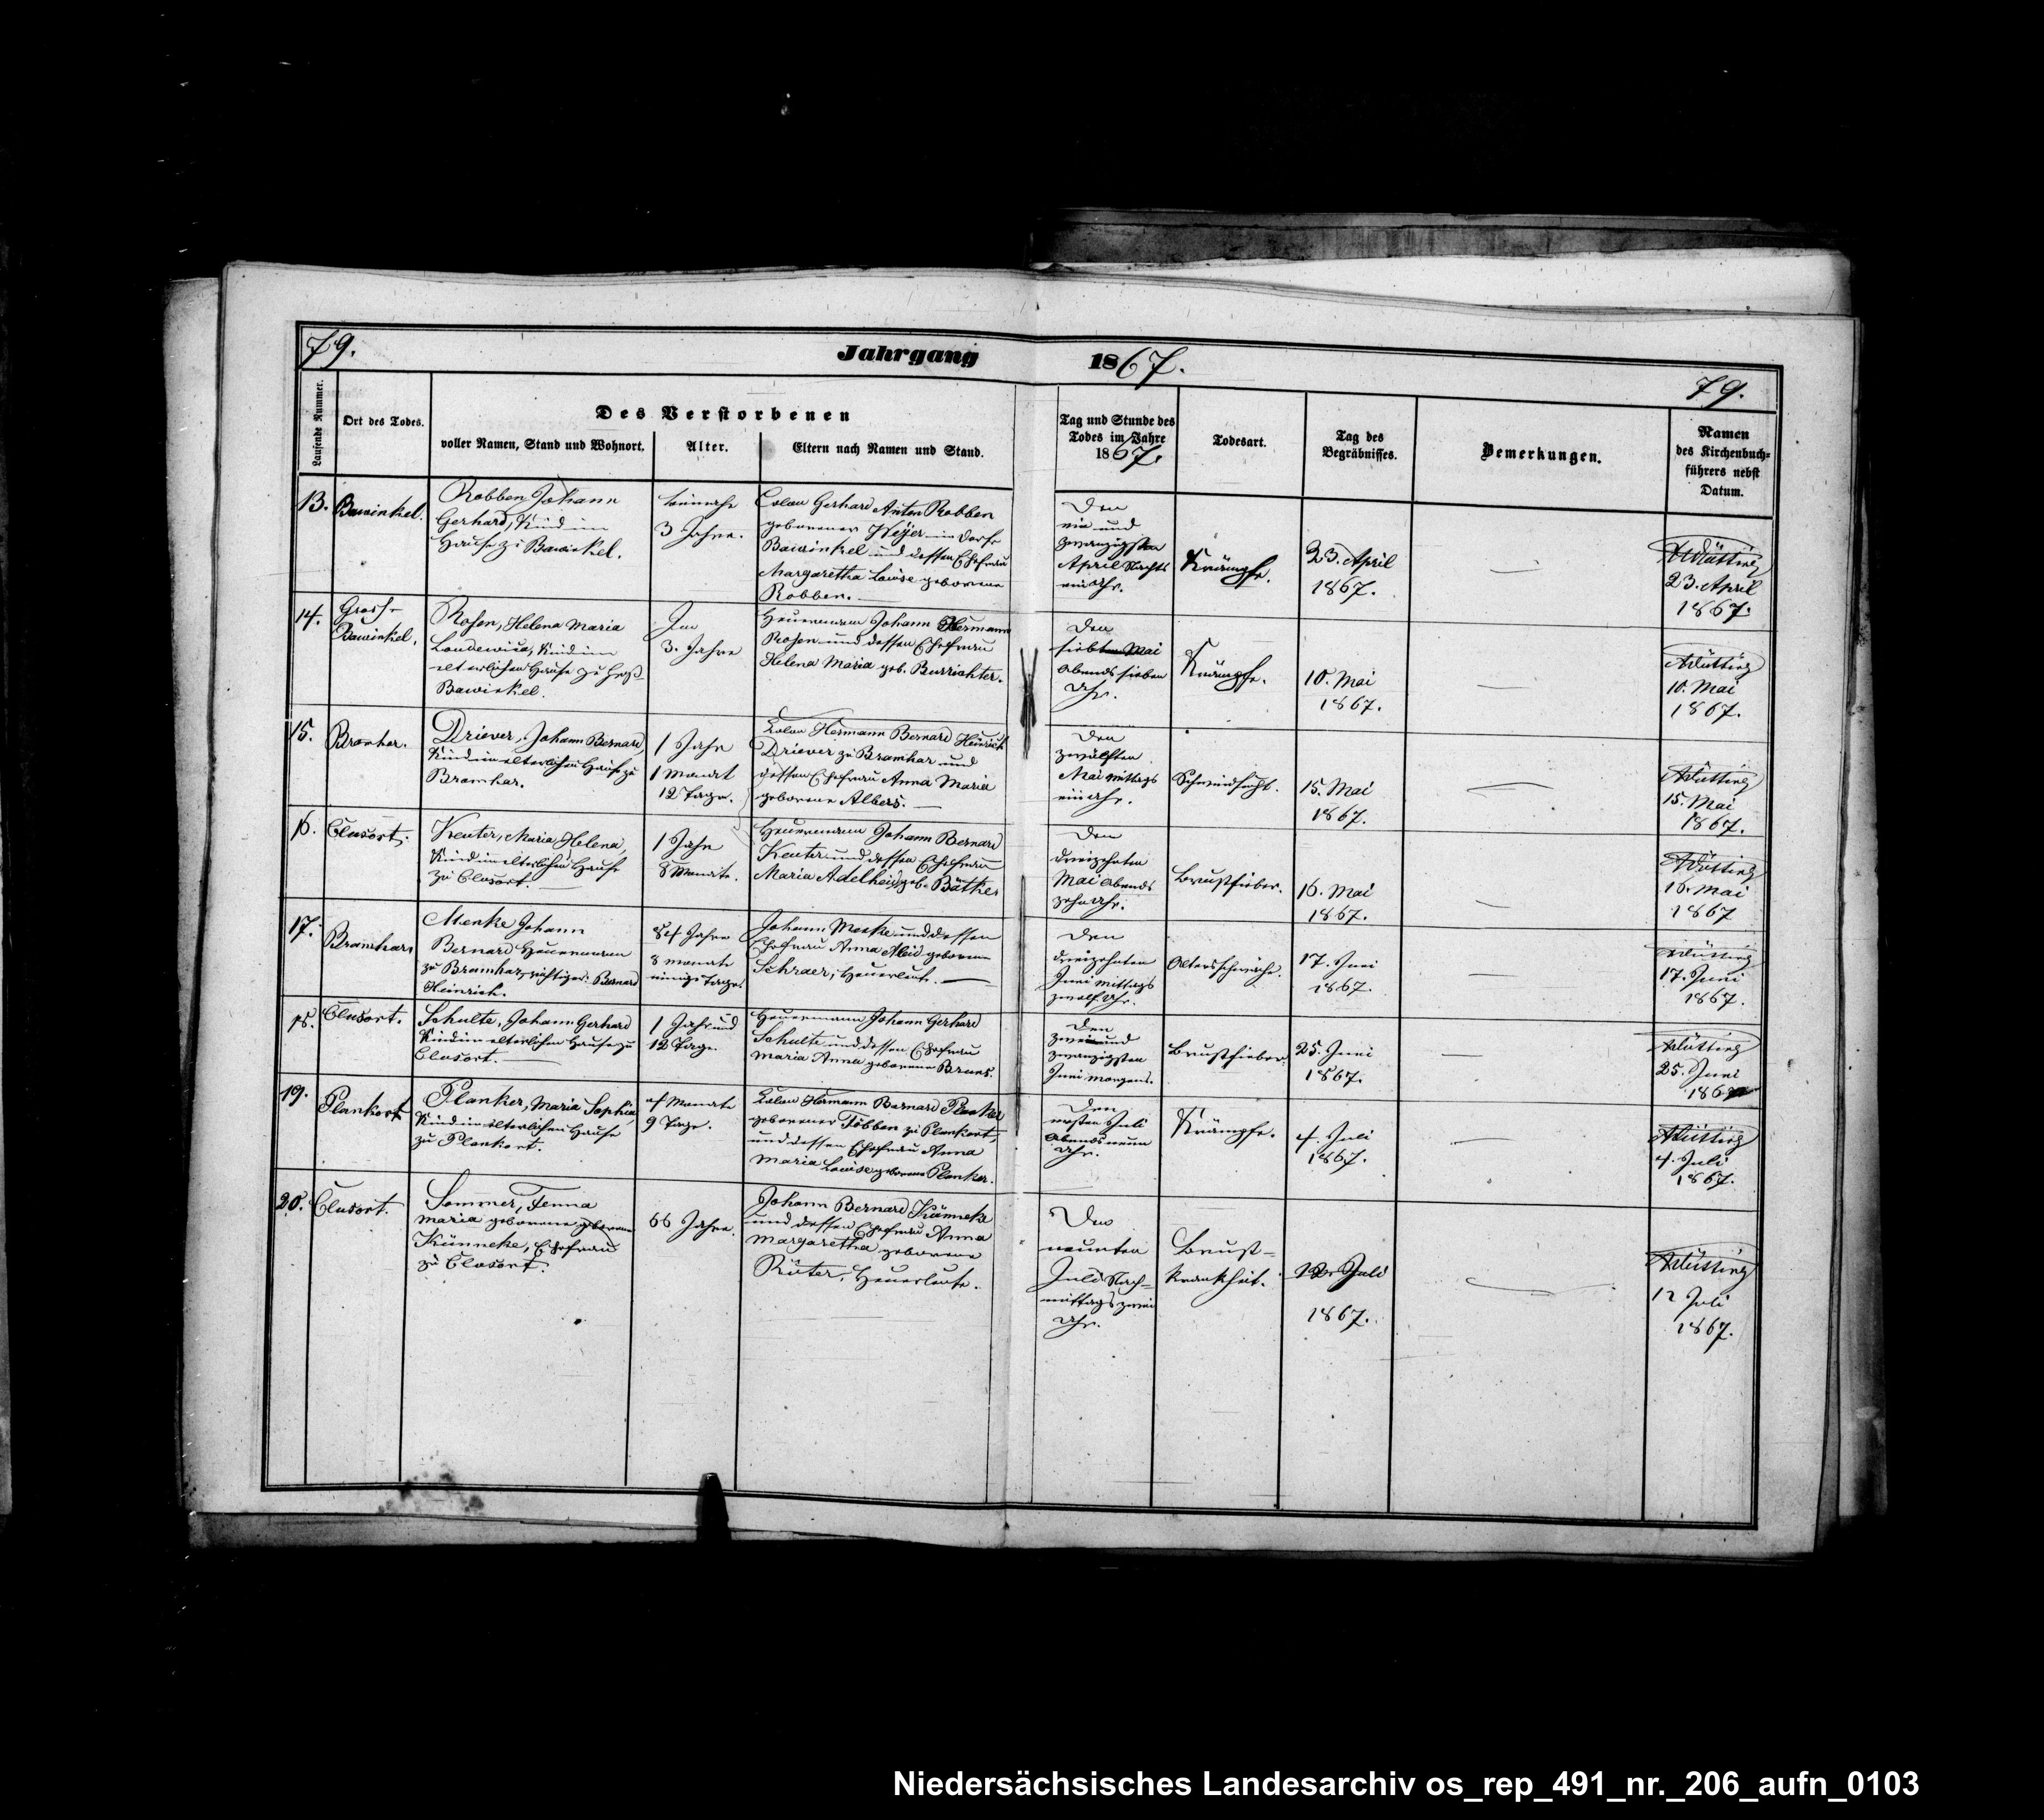 79.
Jahrgang 1867.
79.
Laufende Nummer.
Ort des Todes.
Des Verstorbenen
voller Namen, Stand und Wohnort.
Alter.
Eltern nach Namen und Stand.
Tag und Stunde des
Todes im Jahre
1867.
Todesart.
Tag des
Begräbnisses.
Bemerkungen.
Namen
des Kirchenbuch=
führers nebst
Datum.
13.
Bawinkel.
Robben Johann
Gerhard, Kind im
Hause zu Bawinkel.
beinahe
3 Jahre.
Colon Gerhard Anton Robben
geborener Weijer im Dorfe
Bawinkel und dessen Ehefrau
Margaretha Louise geborene
Robben.
Den
ein und
zwanzigsten
April Nachts
ein Uhr.
Krämpfe.
23. April
1867.
—
23. April
1867.
14.
Gross-
Bawinkel.
Rosen, Helena Maria
Kind im
elterlichen Hause zu Groß-
Bawinkel.
Im
3. Jahre
Heuermann Johann Hermann
Rosen und dessen Ehefrau
Helena Maria geb. Burrichter.
Den
siebten Mai
Abends sieben
Uhr.
Krämpfe.
10. Mai
1867.
—
10. Mai
1867.
15.
Bramhar.
Driever, Johann Bernard,
Kind im elterlichen Hause zu
Bramhar.
1 Jahr
1 Monat
12 Tage.
Kolon Hermann Bernard Heinrich
Driever zu Bramhar und
dessen Ehefrau Anna Maria
geborene Albers. —
Den
zwölften
Mai mittags
ein Uhr.
Schwindsucht.
15. Mai
1867.
—
15. Mai
1867.
16.
Clusort.
Keuter, Maria Helena,
Kind im elterlichen Hause
zu Clusort. —
1 Jahr
8 Monate.
Heuermann Johann Bernard
Keuter und dessen Ehefrau
Maria Adelheid geb.
Den
dreizehnten
Mai Abends
zehn Uhr.
Brustfieber.
16. Mai
1867.
—
16. Mai
1867
17.
Bramhar.
Menke Johann
Bernard Heuermann
zu Bramhar, richtiger: Bernard
Heinrich.
84 Jahre
8 Monate
einige Tage.
Johann Menke und dessen
Ehefrau Anna Aleid geborene
Schraer, Heuerleute. —
Den
dreizehnten
Juni mittags
zwölf Uhr.
Altersschwäche.
17. Juni
1867.
—
17. Juni
1867.
18.
Clusort.
Schulte, Johann Gerhard
Kind im elterlichen Hause zu
Clusort. —
1 Jahr und
12 Tage.
Heuermann Johann Gerhard
Schulte und dessen Ehefrau
Maria Anna geborene Bruns.
Den
zwei und
zwanzigsten
Juni morgens.
Brustfieber
25. Juni
1867.
—
25. Juni
1867
19.
Plankort
Planker, Maria Sophia,
Kind im elterlichen Hause
zu Plankort.
4 Monate
9 Tage.
Kolon Hermann Bernard Planker
geborener Többen zu Plankort,
und dessen Ehefrau Anna
Maria Louise geborene Planker.
Den
ersten Juli
Abends neun
Uhr.
Krämpfe.
4. Juli
1867.
—
4. Juli
1867.
20.
Clusort.
Sommer, Fenna
Maria geborene geborene
Künneke, Ehefrau
zu Clusort.
66 Jahre.
Johann Bernard Künneke
und dessen Ehefrau Anna
Margaretha geborene
Rüter, Heuerleute.
Den
neunten
Juli Nach-
mittags zwei
Uhr.
Brust-
krankheit.
12. Juli
1867.
—
12 Juli
1867.
Niedersächsisches Landesarchiv os_rep_491_nr._206_aufn_0103